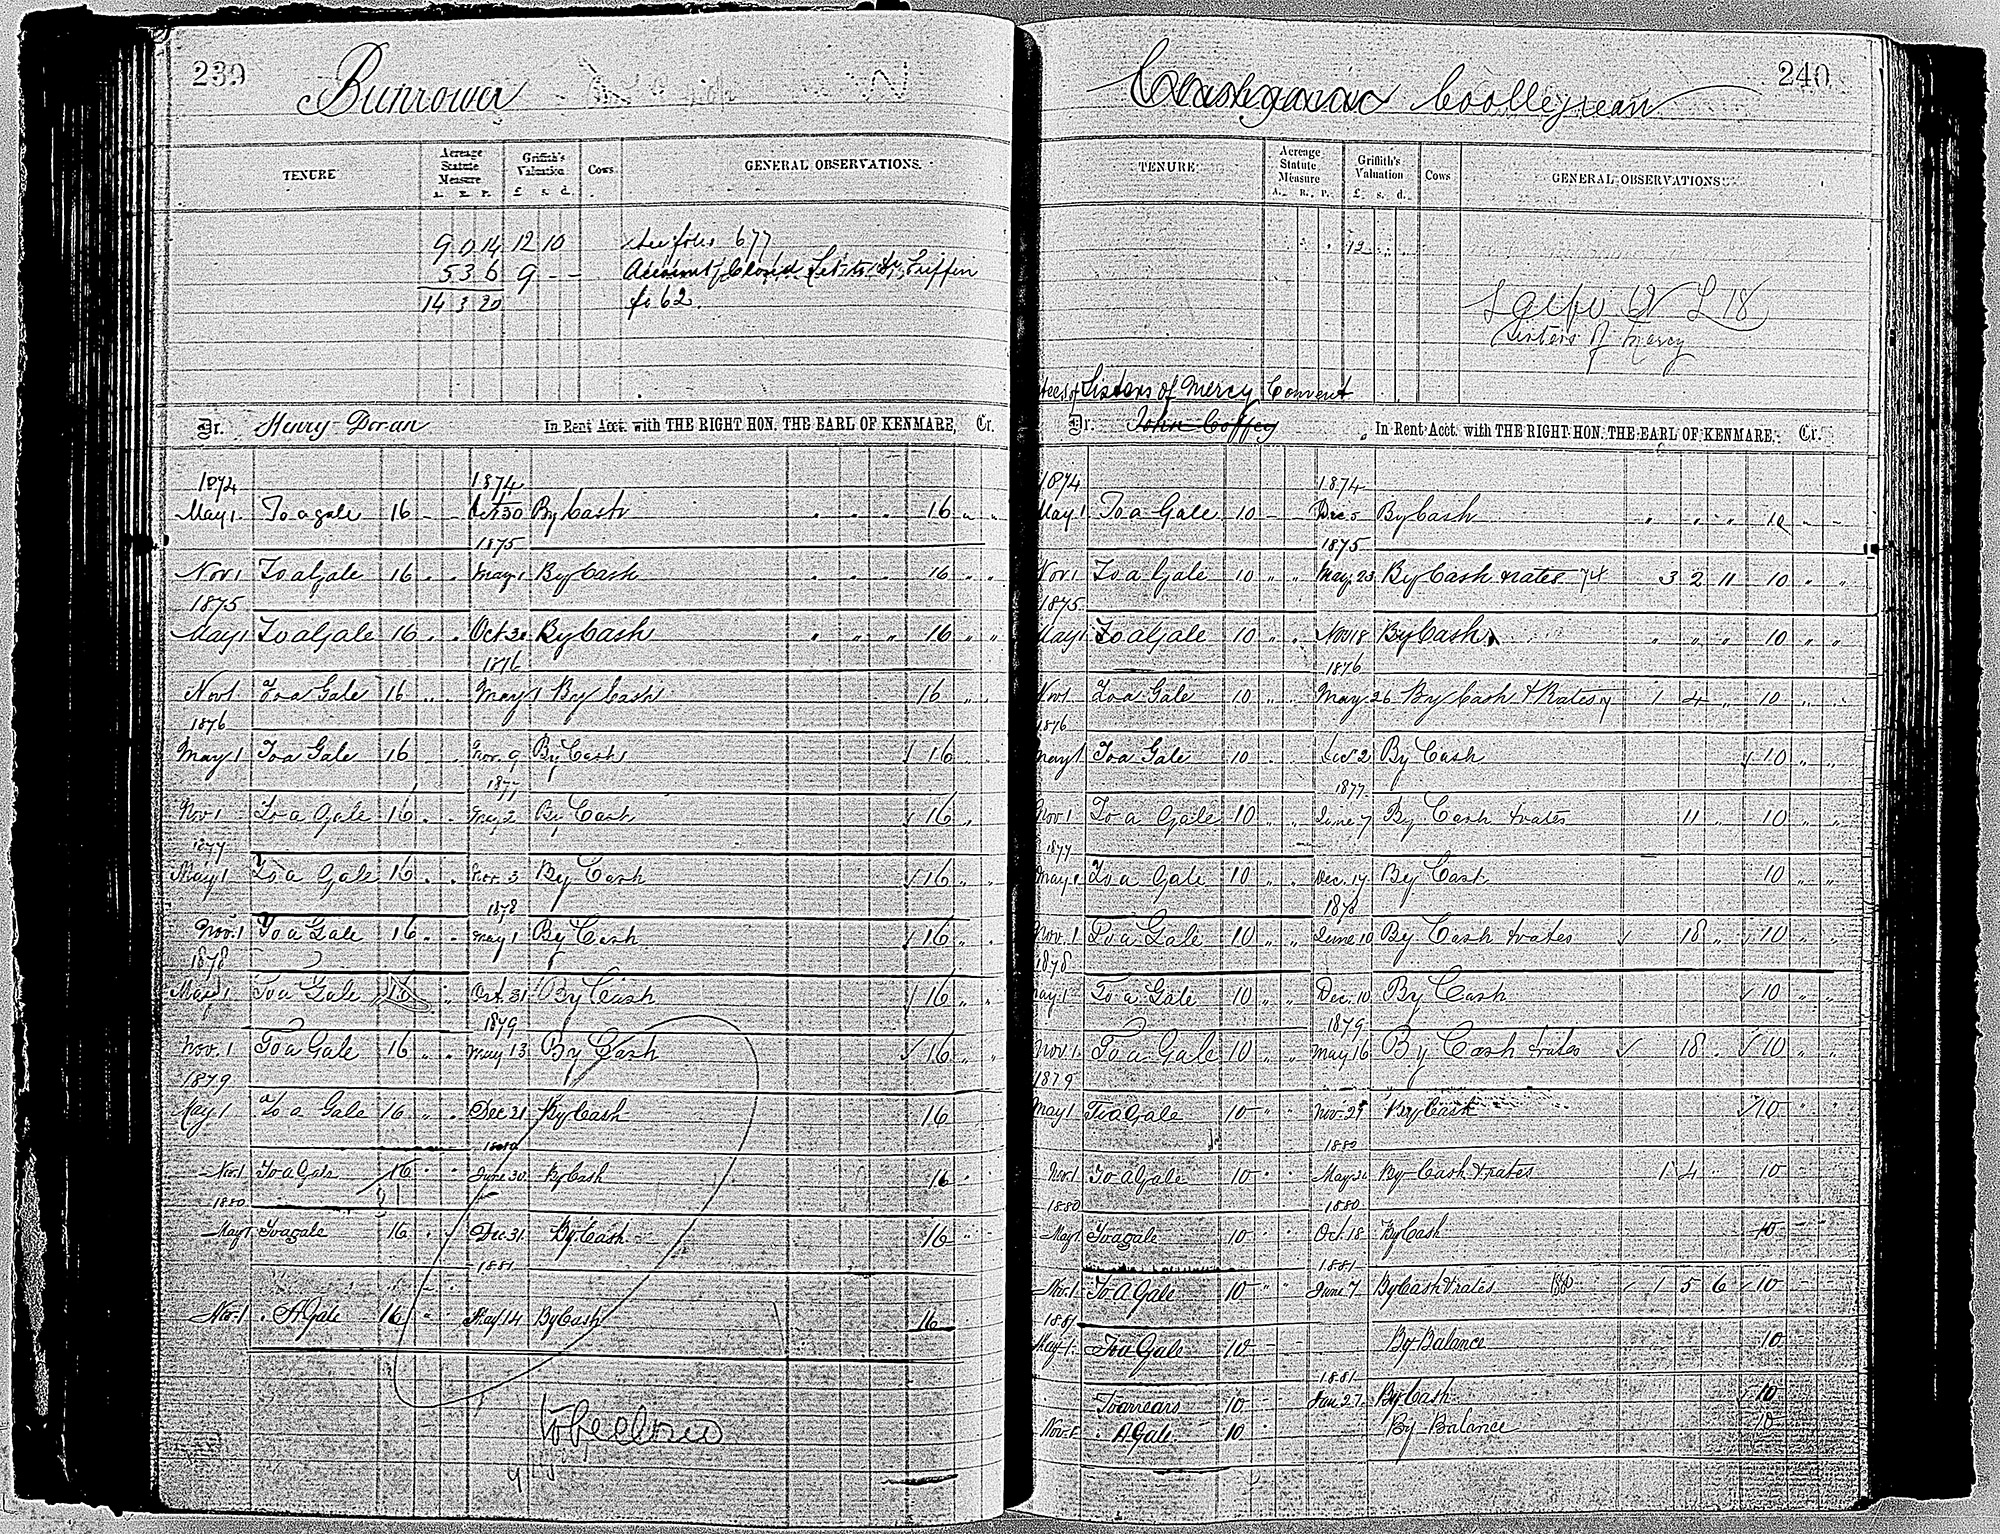 239
Bunrower
TENURE Acreage Statute Measure A. R. P. Griffith's Valuation £ s. d. Cows. GENERAL OBSERVATIONS.
9 0 14 12 10 See folio 677
5 3 6 9 - - Account Closed Let to Griffin
14 3 20 fo 62.
Dr. Henry Doran In Rent Acct. with THE RIGHT HON. THE EARL OF KENMARE, Cr.
1874 1874
May 1 To a gale 16 - - Oct 30 By Cash " " " 16 " "
1875
Nov 1 To a Gale 16 " " May 1 By Cash " " " 16 " "
1875
May 1 To a Gale 16 " " Oct 30 By Cash " " " 16 " "
1876
Nov 1 To a Gale 16 " " May 1 By Cash 16 " "
1876
May 1 To a Gale 16 " " Nov. 9 By Cash 16 " "
1877
Nov 1 To a Gale 16 " " May 2 By Cash 16 "
1877
May 1 To a Gale 16 " " Nov. 3 By Cash 16 " "
1878
Nov. 1 To a Gale 16 " " May 1 By Cash 16 " "
1878
May 1 To a Gale 16 " Oct. 31 By Cash 16 " "
1879
Nov. 1 To a Gale 16 " " May 13 By Cash 16 " "
1879
May 1 To a Gale 16 " " Dec 21 By Cash 16
1880
Nov 1 To a Gale 16 " " June 30 By Cash 16 "
1880
May 1 To a gale 16 " " Dec 31 By Cash 16 " "
1881
Nov. 1 " A Gale 16 " May 14 By Cash 16
240
Coollegrean
TENURE. Acreage Statute Measure A. R. P. Griffith's Valuation £ s. d. Cows GENERAL OBSERVATIONS.
12
L 18
Sisters of Mercy
Sisters of Mercy Convent
Dr. John Coffey In Rent Acct. with THE RIGHT HON. THE EARL OF KENMARE, Cr.
1874 1874
May 1 To a Gale 10 - Dec 5 By Cash " " " 10 " "
1875
Nov 1 To a Gale 10 " " May 23 By Cash & rates 74 3 2 11 10 " "
1875
May 1 To a Gale 10 " " Nov 18 By Cash " " " 10 " "
1876
Nov 1 To a Gale 10 " " May 26 By Cash & Rates 1 4 " 10 " "
1876
May 1 To a Gale 10 " Dec 2 By Cash 10 " "
1877
Nov. 1 To a Gale 10 " " June 7 By Cash & rates 11 " 10 " "
1877
May 1 To a Gale 10 " " Dec. 17 By Cash 10 " "
1878
Nov. 1 To a Gale 10 " " June 10 By Cash & rates 18 " 10 " "
1878
May 1 To a Gale 10 " " Dec. 10 By Cash 10 " "
1879
Nov. 1 To a Gale 10 " " May 16 By Cash & rates 18 " 10 " "
1879
May 1 To a Gale 10 " " Nov. 29 By Cash 10 " "
1880
Nov. 1 To a Gale 10 " " May By Cash & rates 1 4 10
1880 1880
May 1 To a gale 10 " " Oct. 18 By Cash 10
1881
Nov. 1 To A Gale 10 " " June 7 By Cash & rates 1880 1 5 6 10
1881
May 1. To a Gale 10 By Balance 10
1881
To arrears 10 Jan 27 By Cash 10
Nov. 1 " A Gale 10 By Balance 10